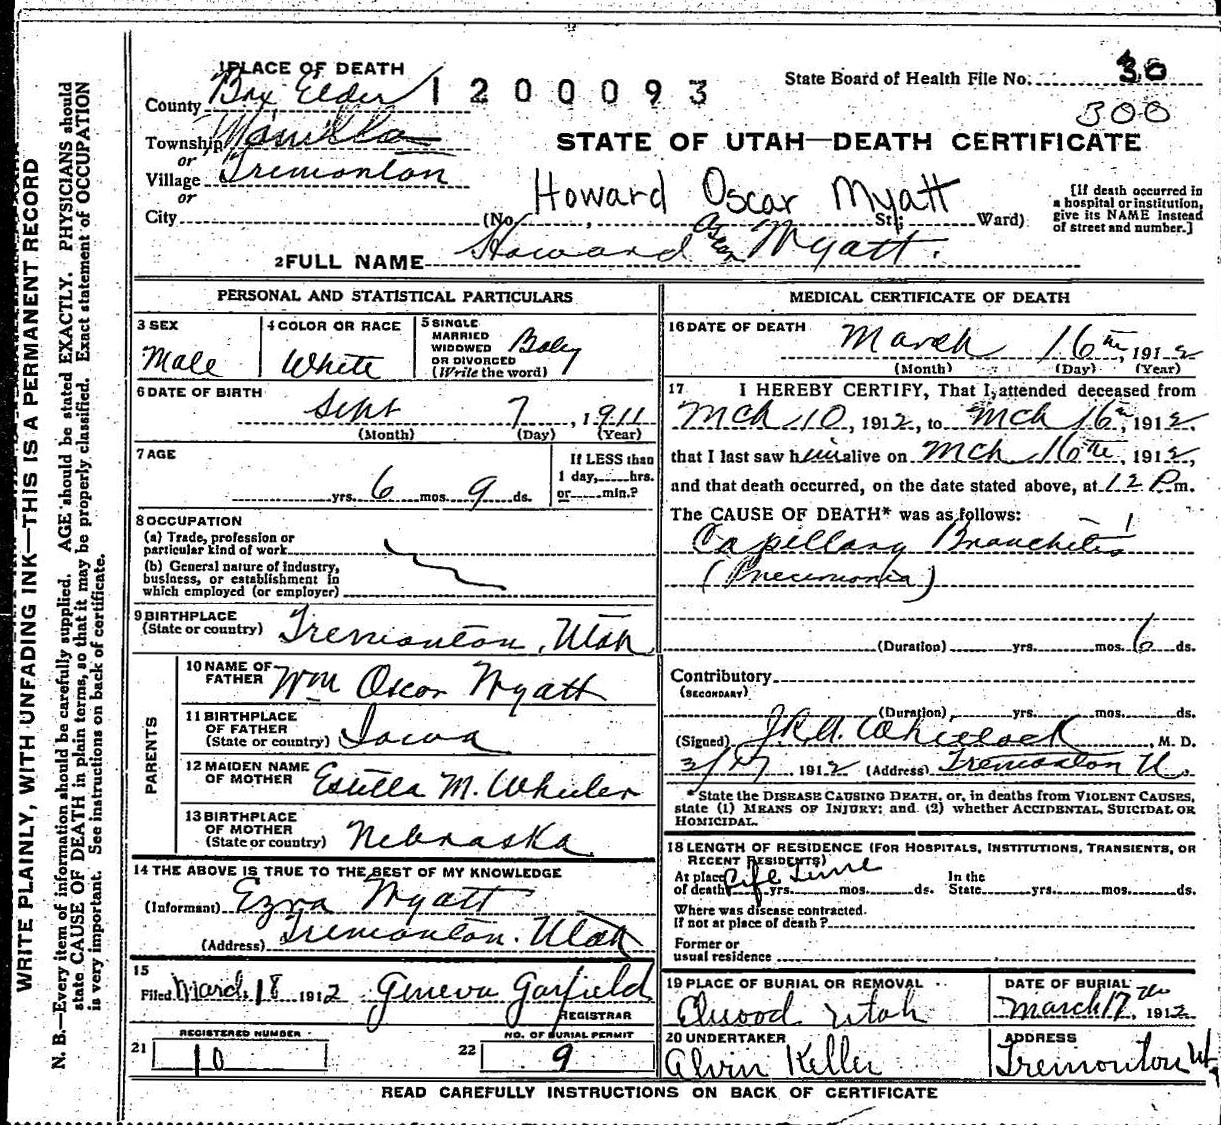 1 PLACE OF DEATH
County Box Elder
1200093
State Board of Health File No. 30
300
Township Manilla
or
Village Tremonton
or
City
STATE OF UTAH—DEATH CERTIFICATE
Howard Oscar Myatt
(No. , St.; Ward)
[If death occurred in
a hospital or institution,
give its NAME instead
of street and number.]
2 FULL NAME Howard Oscar Myatt.
PERSONAL AND STATISTICAL PARTICULARS
3 SEX
Male
4 COLOR OR RACE
White
5 SINGLE
MARRIED
WIDOWED
OR DIVORCED
(Write the word)
Baby
6 DATE OF BIRTH
Sept 7, 1911
(Month) (Day) (Year)
7 AGE
yrs. 6 mos. 9 ds.
If LESS than
1 day, hrs.
or min.?
8 OCCUPATION
(a) Trade, profession or
particular kind of work
(b) General nature of industry,
business, or establishment in
which employed (or employer)
9 BIRTHPLACE
(State or country) Tremonton, Utah
PARENTS
10 NAME OF
FATHER Wm Oscar Myatt
11 BIRTHPLACE
OF FATHER
(State or country) Iowa
12 MAIDEN NAME
OF MOTHER Estella M. Wheeler
13 BIRTHPLACE
OF MOTHER
(State or country) Nebraska
14 THE ABOVE IS TRUE TO THE BEST OF MY KNOWLEDGE
(Informant) Ezra Myatt
(Address) Tremonton. Utah
15
Filed March 18 1912 Geneva Garfield
REGISTRAR
REGISTERED NUMBER
21 10
NO. OF BURIAL PERMIT
22 9
MEDICAL CERTIFICATE OF DEATH
16 DATE OF DEATH March 16th, 1912
(Month) (Day) (Year)
17 I HEREBY CERTIFY, That I attended deceased from
Mch 10, 1912, to Mch 16, 1912,
that I last saw him alive on Mch 16th, 1912,
and that death occurred, on the date stated above, at 12 P.m.
The CAUSE OF DEATH* was as follows:
Capillary Bronchitis
(Pneumonia)
(Duration) yrs. mos. 6 ds.
Contributory
(SECONDARY)
(Duration) yrs. mos. ds.
(Signed) Whitlock, M. D.
3/17, 1912 (Address) Tremonton U.
*State the DISEASE CAUSING DEATH, or, in deaths from VIOLENT CAUSES,
state (1) MEANS OF INJURY; and (2) whether ACCIDENTAL, SUICIDAL OR
HOMICIDAL.
18 LENGTH OF RESIDENCE (FOR HOSPITALS, INSTITUTIONS, TRANSIENTS, OR
RECENT RESIDENTS)
At place
of death Life Time yrs. mos. ds. In the
State yrs. mos. ds.
Where was disease contracted.
If not at place of death?
Former or
usual residence
19 PLACE OF BURIAL OR REMOVAL
Elwood Utah
DATE OF BURIAL
March 17th, 1912
20 UNDERTAKER
Alvin Keller
ADDRESS
Tremonton Ut.
READ CAREFULLY INSTRUCTIONS ON BACK OF CERTIFICATE
WRITE PLAINLY, WITH UNFADING INK—THIS IS A PERMANENT RECORD
N. B.—Every item of information should be carefully supplied. AGE should be stated EXACTLY. PHYSICIANS should
state CAUSE OF DEATH in plain terms, so that it may be properly classified. Exact statement of OCCUPATION
is very important. See instructions on back of certificate.